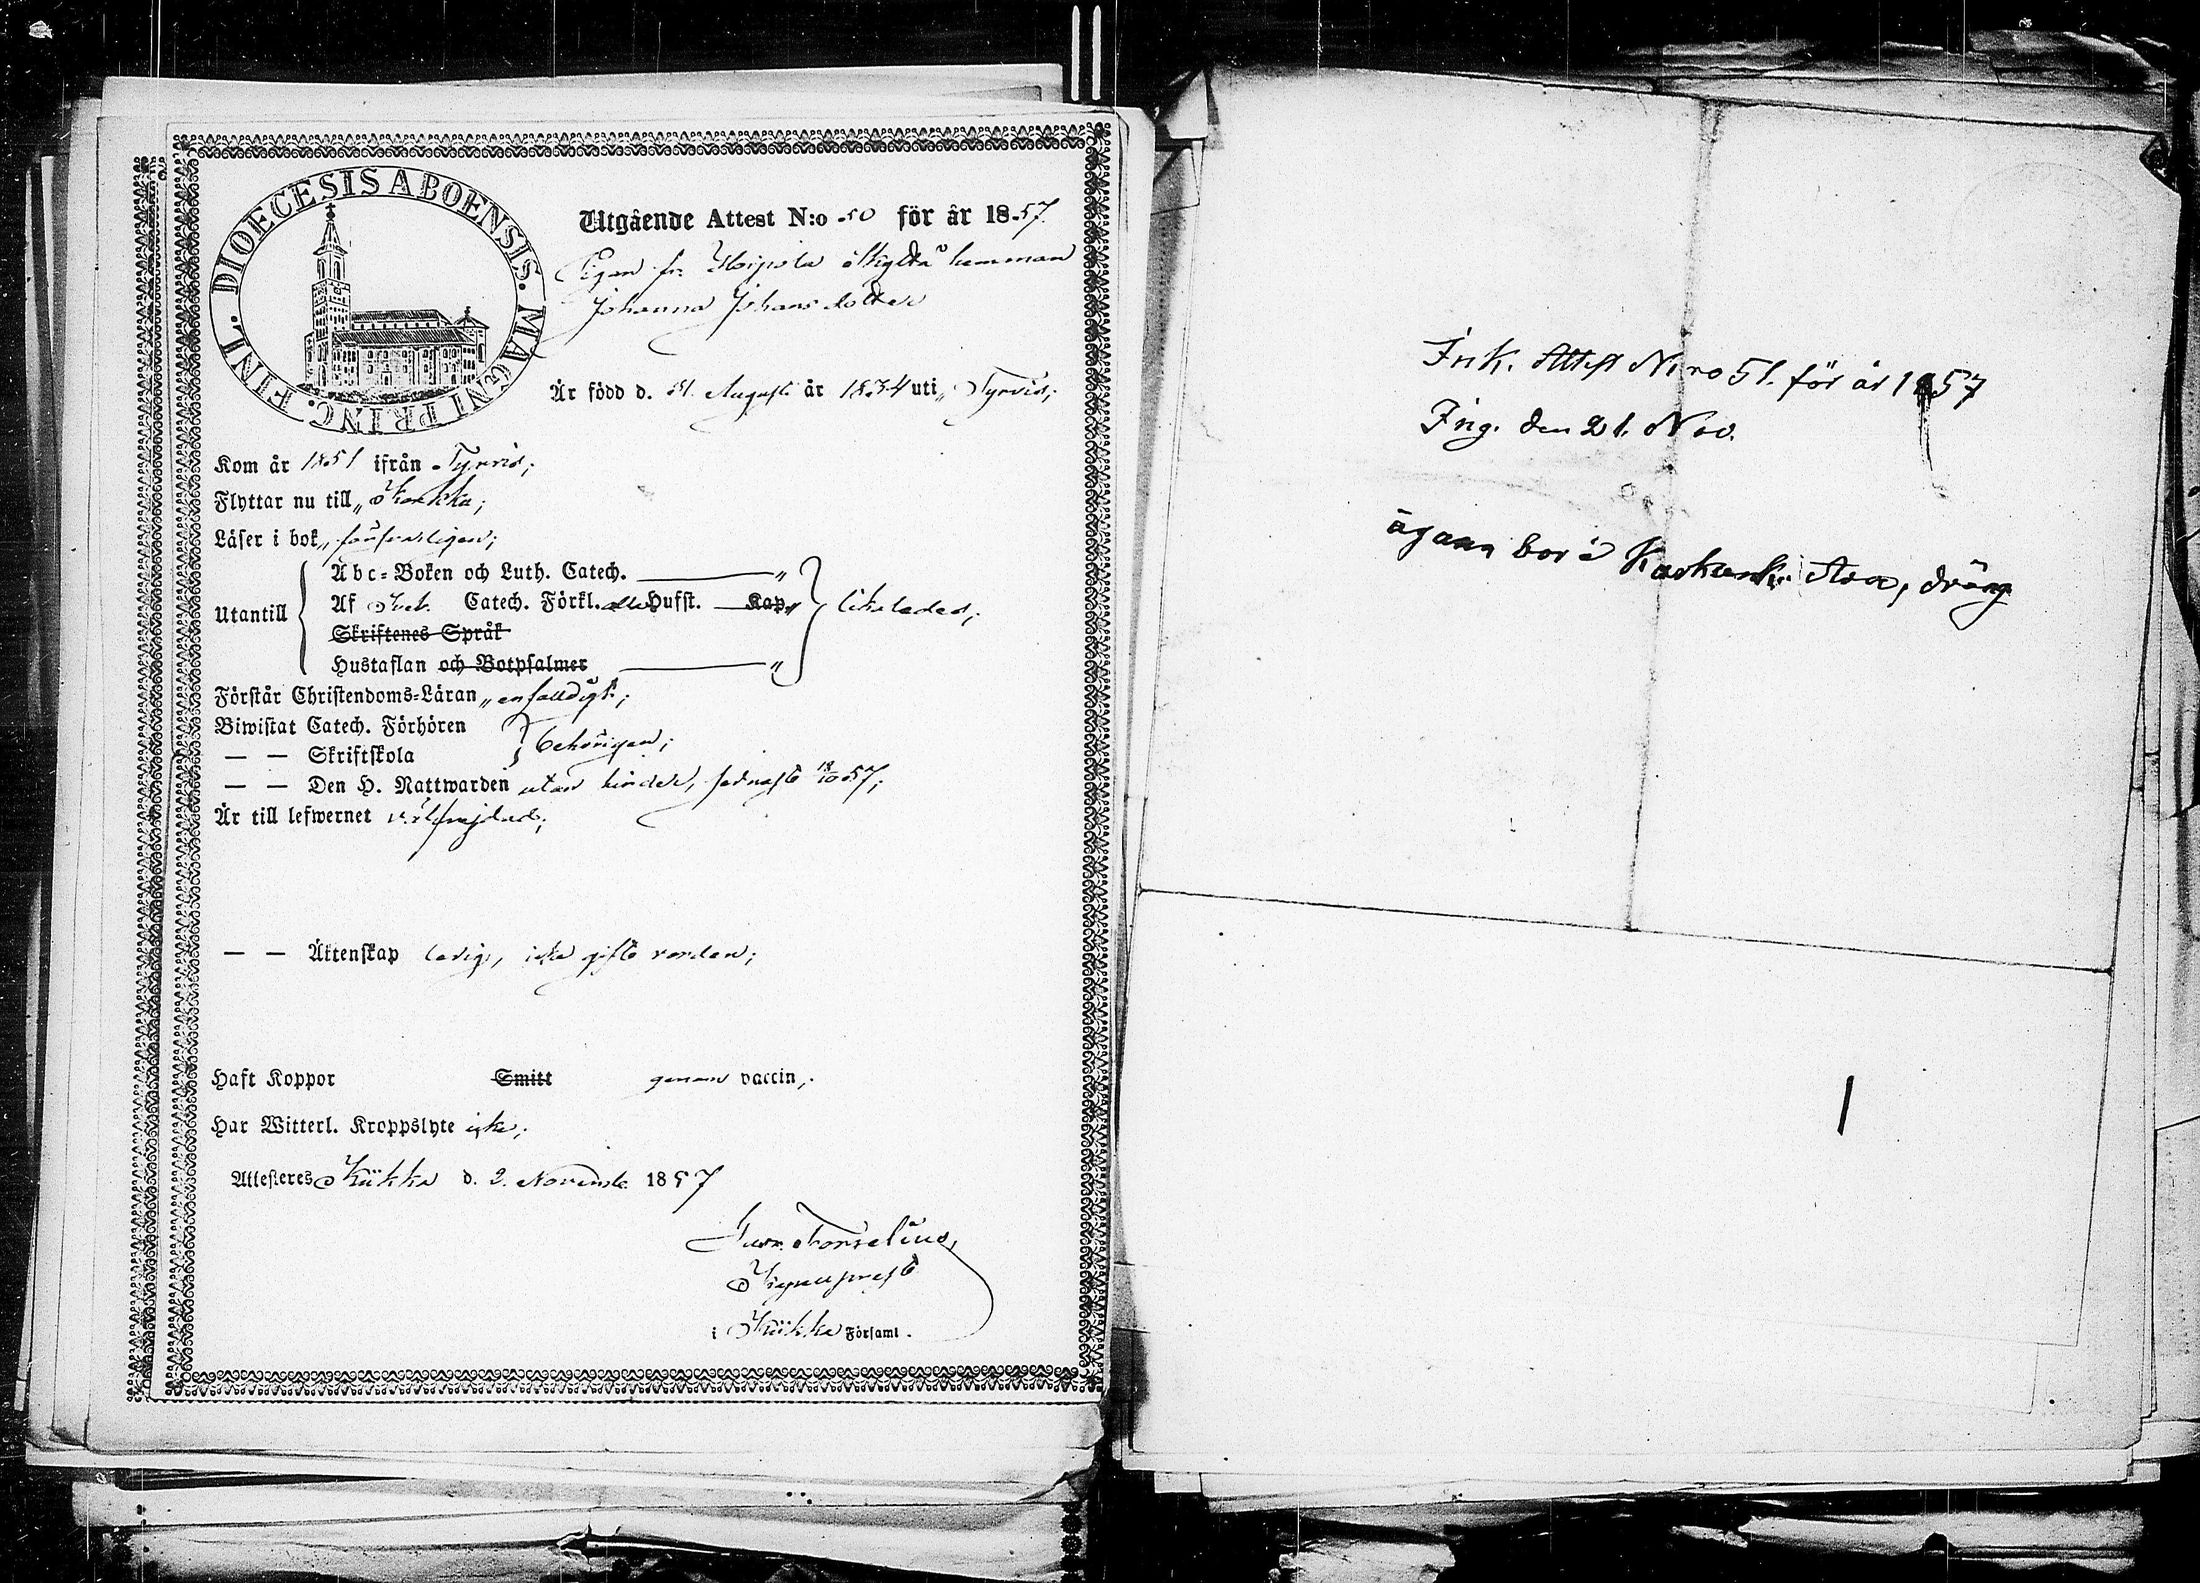 DIOECESIS ABOENSIS. MAGNI PRINC. FINL.
Utgående Attest N:o 50 för år 1857.
Pigan fr. hemman
Johanna Johansdotter
Är född d. 31. Augusti år 1834 uti „ Tyrvis;
Kom år 1851 ifrån Tyrvis;
Flyttar nu till „
Läser i bok „ försvarligen;
Utantill
Abc-Boken och Luth. Catech. „
Af Catech. Förkl. alla Hufst. Kap. likaledes;
Skriftenes Språk
Hustaflan och Botpsalmer „
Förstår Christendoms-Läran „ enfaldigt;
Biwistat Catech. Förhören
— — Skriftskola behörigen;
— — Den H. Nattwarden utan hinder, sednast 18/10 57;
Är till lefwernet välfrejdad;
— — Äktenskap ledig, icke gift vorden;
Haft Koppor Smitt genom vaccin;
Har Witterl. Kroppslyte icke;
Attesteras Kiikka d. 2. Novemb. 1857
Kapellprest
i Kiikka Församl.
Ink. Attest N:ro 51. för år 1857
Ing. den 21. Nov.
ägaren bor å dräng